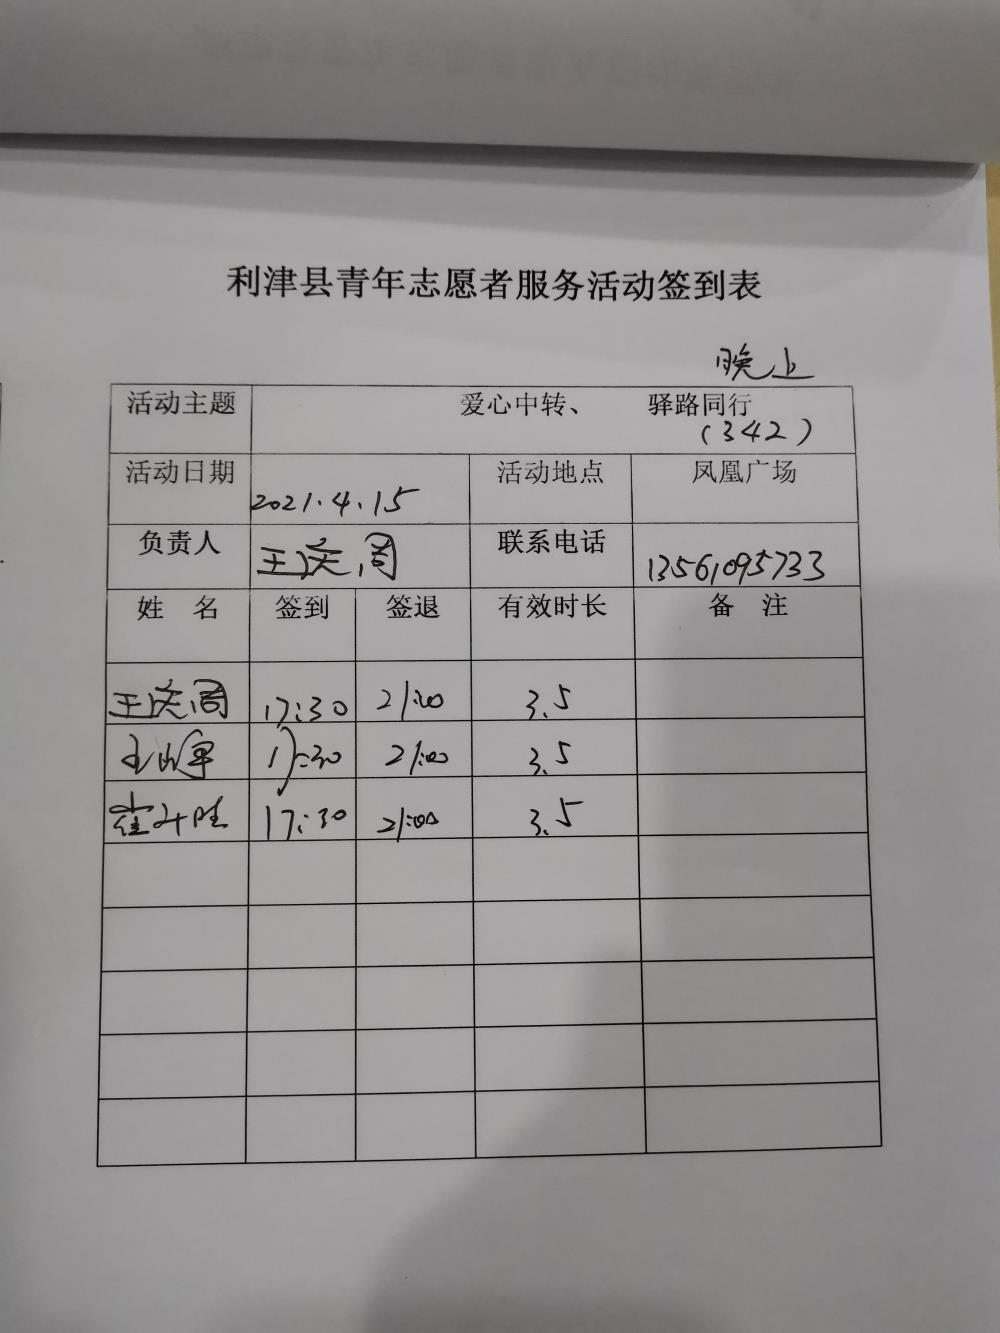 利津县青年志愿者服务活动签到表
晚上
活动主题 爱心中转、 驿路同行
(342)
活动日期 2021.4.15 活动地点 凤凰广场
负责人 王庆周 联系电话 13561095733
姓 名 签到 签退 有效时长 备 注
王庆周 17:30 21:00 3.5
17:30 21:00 3.5
崔 17:30 21:00 3.5